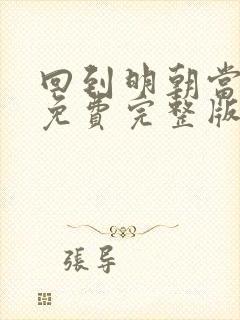 回到明朝当
免費完整版
張导